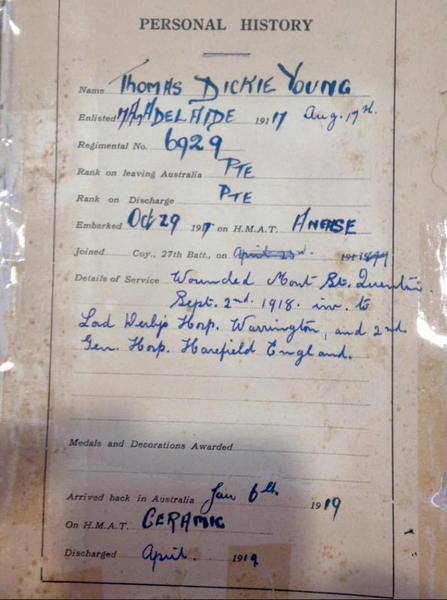 PERSONAL HISTORY
Name THOMAS DICKIE YOUNG
Enlisted ADELAIDE 1917 Aug. 17st.
Regimental No. 6929
Rank on leaving Australia PTE
Rank on Discharge PTE
Embarked Oct 29 1917 on H.M.A.T.
Joined Coy., 27th Batt., on April 23rd. 191
Details of Service Wounded Mont St. Quentin.
Sept. 2nd. 1918. inv. to
Lord Derby's Hosp. Warrington, and 2nd
Gen. Hosp. Harefield England.
Medals and Decorations Awarded
Arrived back in Australia Jan 6th. 1919
On H.M.A.T. CERAMIC
Discharged April 1919